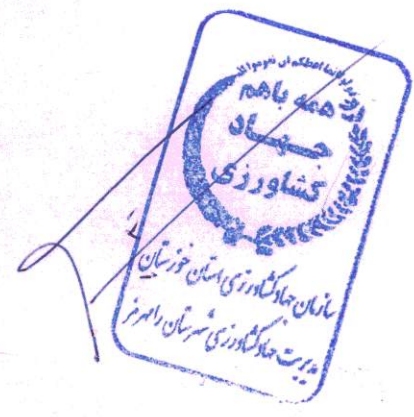 همه باهم
جهاد
کشاورزی
سازمان جهاد کشاورزی استان خوزستان
مدیریت جهاد کشاورزی شهرستان رامهرمز